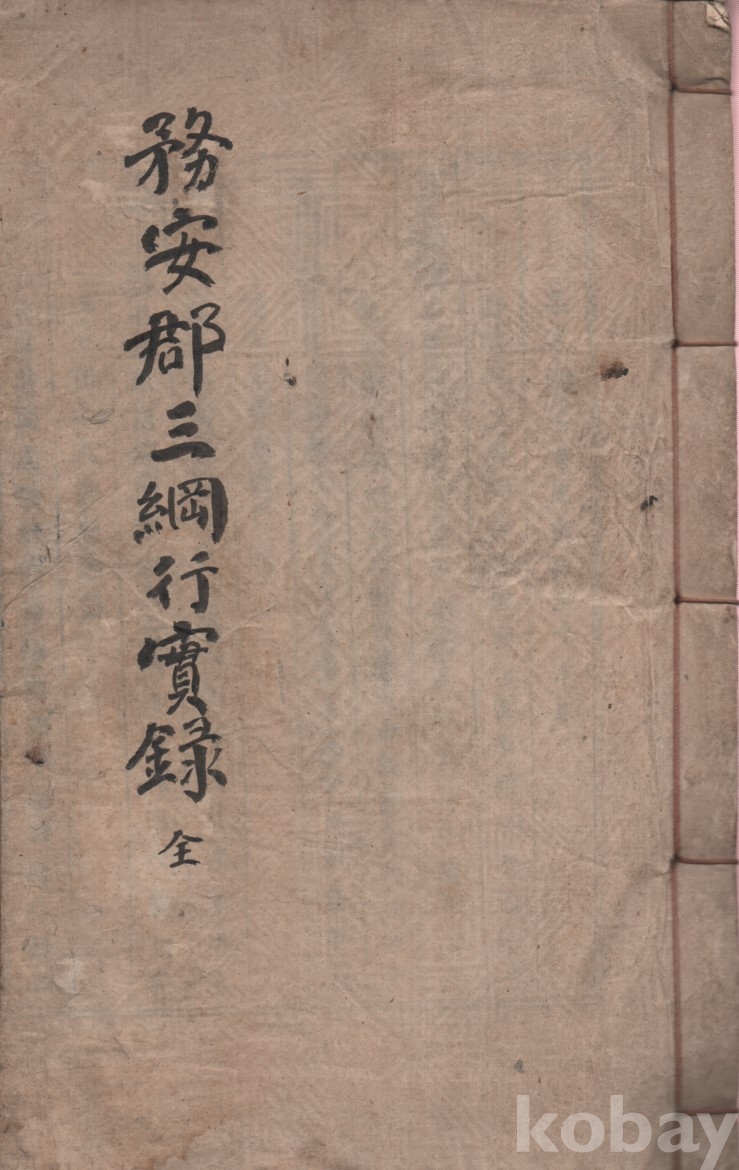 務安郡三綱行實録 全
kobay